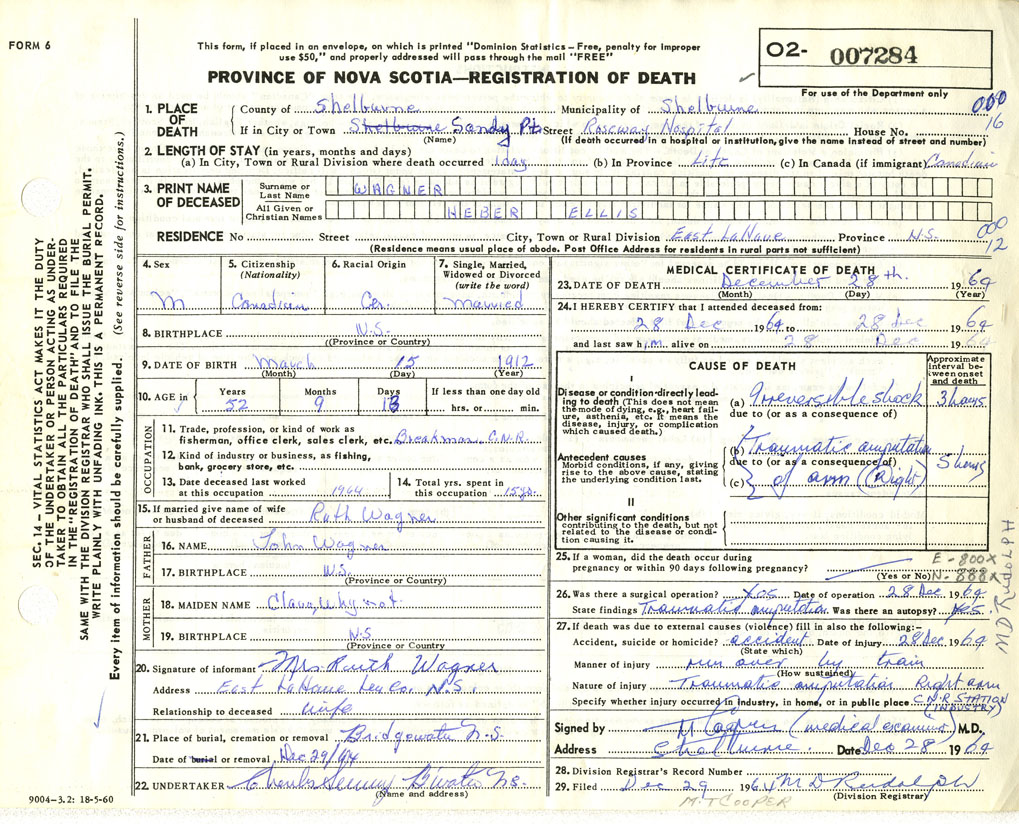 FORM 6
This form, if placed in an envelope, on which is printed "Dominion Statistics – Free, penalty for improper
use $50," and properly addressed will pass through the mail "FREE"
O2- 007284
PROVINCE OF NOVA SCOTIA—REGISTRATION OF DEATH
For use of the Department only
1. PLACE OF DEATH County of Shelburne Municipality of Shelburne 000
If in City or Town Shelburne Sandy Pt. Street Roseway Hospital House No. 16
(Name) (If death occurred in a hospital or institution, give the name instead of street and number)
2. LENGTH OF STAY (in years, months and days)
(a) In City, Town or Rural Division where death occurred 1 day (b) In Province Life (c) In Canada (if immigrant) Canadian
3. PRINT NAME OF DECEASED
Surname or Last Name WAGNER
All Given or Christian Names HEBER ELLIS
000
RESIDENCE No Street City, Town or Rural Division East LaHave Province N.S. 12
(Residence means usual place of abode. Post Office Address for residents in rural parts not sufficient)
4. Sex M
5. Citizenship (Nationality) Canadian
6. Racial Origin Ger.
7. Single, Married, Widowed or Divorced (write the word) Married
8. BIRTHPLACE N.S.
(Province or Country)
9. DATE OF BIRTH March 15 1912
(Month) (Day) (Year)
10. AGE in Years 52 Months 9 Days 13 If less than one day old hrs. or min.
OCCUPATION
11. Trade, profession, or kind of work as
fisherman, office clerk, sales clerk, etc. Breakman, C.N.R.
12. Kind of industry or business, as fishing,
bank, grocery store, etc.
13. Date deceased last worked at this occupation 1964
14. Total yrs. spent in this occupation 15 yrs.
15. If married give name of wife or husband of deceased Ruth Wagner
FATHER
16. NAME John Wagner
17. BIRTHPLACE N.S.
(Province or Country)
MOTHER
18. MAIDEN NAME Clara Whynot
19. BIRTHPLACE N.S
(Province or Country)
20. Signature of informant Mrs Ruth Wagner
Address East LaHave Lun Co. N.S.
Relationship to deceased wife
21. Place of burial, cremation or removal Bridgewater N.S.
Date of burial or removal Dec 29/64
22. UNDERTAKER B'water N.S.
(Name and address)
9004-3.2: 18-5-60
MEDICAL CERTIFICATE OF DEATH
23. DATE OF DEATH December 28th. 1964
(Month) (Day) (Year)
24. I HEREBY CERTIFY that I attended deceased from:
28 Dec 1964 to 28 Dec 1964
and last saw him alive on 28 Dec 1964
CAUSE OF DEATH
Approximate interval between onset and death
I
Disease or condition directly leading to death (This does not mean the mode of dying, e.g., heart failure, asthenia, etc. It means the disease, injury, or complication which caused death.)
(a) Irreversible shock 3 hours
due to (or as a consequence of)
Antecedent causes
Morbid conditions, if any, giving rise to the above cause, stating the underlying condition last.
(b) Traumatic amputation
due to (or as a consequence of) 5 hours
(c) of arm (Right)
II
Other significant conditions
contributing to the death, but not related to the disease or condition causing it.
25. If a woman, did the death occur during
pregnancy or within 90 days following pregnancy? E-800X
(Yes or No) N-888X
26. Was there a surgical operation? Yes Date of operation 28 Dec 1964
State findings Traumatic amputation Was there an autopsy? Yes
27. If death was due to external causes (violence) fill in also the following:-
Accident, suicide or homicide? accident Date of injury 28 Dec 1964
(State which)
Manner of injury run over by train
(How sustained)
Nature of injury Traumatic amputation Right arm
Specify whether injury occurred in industry, in home, or in public place C.N.R STATION (INDUSTRY)
Signed by (medical examiner) M.D.
Address Shelburne. Date Dec 28 1964
28. Division Registrar's Record Number
29. Filed Dec 29 1964 M D Rudolph
(Division Registrar)
M.T COOPER
MD RUDOLPH
SEC. 14 – VITAL STATISTICS ACT MAKES IT THE DUTY
OF THE UNDERTAKER OR PERSON ACTING AS UNDER-
TAKER TO OBTAIN ALL THE PARTICULARS REQUIRED
IN THE "REGISTRATION OF DEATH" AND TO FILE THE
SAME WITH THE DIVISION REGISTRAR WHO SHALL ISSUE THE BURIAL PERMIT.
WRITE PLAINLY WITH UNFADING INK. THIS IS A PERMANENT RECORD.
Every item of information should be carefully supplied. (See reverse side for instructions.)